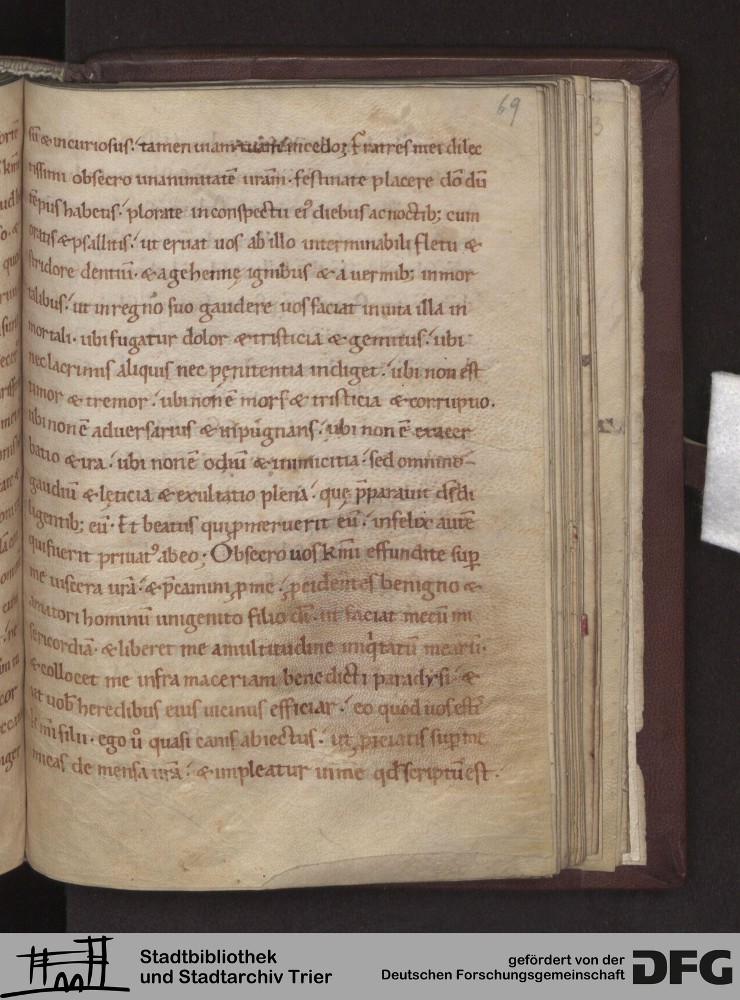 69
sū & incuriosus. tamen inced; Fratres mei dilec
tissimi obsecro unanimitatē urām. festinate placere dō dū
tēpus habetis. plorate inconspectu ei᾽ diebus ac noctib; cum
oratis & psallitis. ut eruat uos ab illo interminabili fletu &
stridore dentiū. & a gehennę ignibus & a uermib; inmor
talibus. ut in regno suo gaudere uos faciat inuita illa in
mortali. ubi fugatur dolor & tristicia & gemitus. ubi
nec lacrimis aliquis nec penitentia indiget. ubi non est
timor & tremor. ubi non ē mors & tristicia & corruptio.
ubi non ē aduersarius & inpugnans. ubi non ē exacer
batio & ira. ubi non ē odiū & inimicitia. sed omnino
gaudiū & lęticia & exultatio plena. quę p̄parauit ds̄ di
ligentib; eū. Et beatus qui ꝓmeruerit eū. infelix autē
qui fuerit priuat᾽ ab eo. Obsecro uos k̄mi effundite suꝑ
me uiscera urā. & p̄camini ꝓ me. ꝓcidentes benigno &
amatori hominū unigenito filio dī. ut faciat mecū mi
sericordiā. & liberet me a multitudine iniq̇tatū mearū.
& collocet me infra maceriam benedicti paradysi. &
ut uob᾽ heredibus eius uicinus efficiar. eo quod uos estis
k̄mi filii. ego ů quasi canis abiectus. ut ꝓiciatis suꝑ me
micas de mensa urā. & impleatur in me qđ scriptū est.
Stadtbibliothek
und Stadtarchiv Trier
gefördert von der
Deutschen Forschungsgemeinschaft
DFG